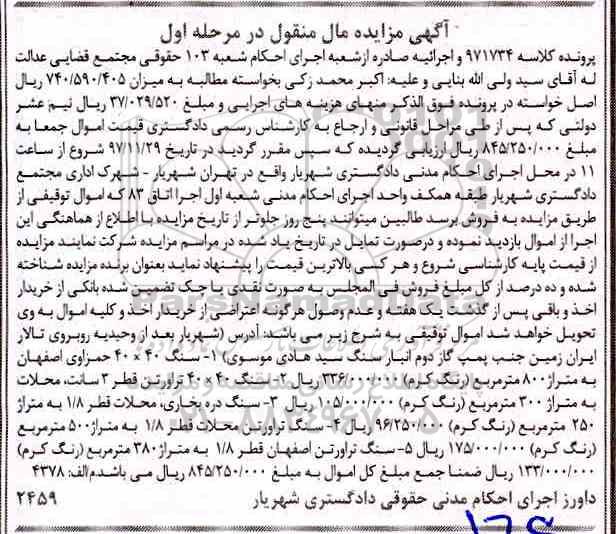 آگهی مزایده مال منقول در مرحله اول
پرونده کلاسه ۹۷۱۷۳۴ و اجرائیه صادره ازشعبه اجرای احکام شعبه ۱۰۳ حقوقی مجتمع قضایی عدالت
له آقای سید ولی الله بنایی و علیه: اکبر محمد زکی بخواسته مطالبه به میزان ۷۴۰/۵۹۰/۴۰۵ ریال
اصل خواسته در پرونده فوق الذکر منهای هزینه های اجرایی و مبلغ ۳۷/۰۲۹/۵۲۰ ریال نیم عشر
دولتی که پس از طی مراحل قانونی و ارجاع به کارشناس رسمی دادگستری قیمت اموال جمعا به
مبلغ ۸۴۵/۲۵۰/۰۰۰ ریال ارزیابی گردیده که سپس مقرر گردید در تاریخ ۹۷/۱۱/۲۹ شروع از ساعت
۱۱ در محل اجرای احکام مدنی دادگستری شهریار واقع در تهران شهریار - شهرک اداری مجتمع
دادگستری شهریار طبقه همکف واحد اجرای احکام مدنی شعبه اول اجرا اتاق ۸۳ که اموال توقیفی از
طریق مزایده به فروش برسد طالبین میتوانند پنج روز جلوتر از تاریخ مزایده با اطلاع از هماهنگی این
اجرا از اموال بازدید نموده و درصورت تمایل در تاریخ یاد شده در مراسم مزایده شرکت نمایند مزایده
از قیمت پایه کارشناسی شروع و هر کسی بالاترین قیمت را پیشنهاد نماید بعنوان برنده مزایده شناخته
شده و ده درصد از کل مبلغ فروش فی المجلس به صورت نقدی یا چک تضمین شده بانکی از خریدار
اخذ و باقی پس از گذشت یک هفته و عدم وصول هرگونه اعتراضی از خریدار اخذ و کلیه اموال به وی
تحویل خواهد شد اموال توقیفی به شرح زیر می باشد: آدرس (شهریار بعد از وحیدیه روبروی تالار
ایران زمین جنب پمپ گاز دوم انبار سنگ سید هادی موسوی) ۱- سنگ ۴۰ × ۴۰ حمزاوی اصفهان
به متراژ ۸۰۰ مترمربع (رنگ کرم) ۳۳۶/۰۰۰/۰۰۰ ریال ۲- سنگ ۴۰ × ۴۰ تراورتن قطر ۳ سانت، محلات
به متراژ ۳۰۰ مترمربع (رنگ کرم) ۱۰۵/۰۰۰/۰۰۰ ریال ۳- سنگ دره بخاری، محلات قطر ۱/۸ به متراژ
۲۵۰ مترمربع (رنگ کرم) ۹۶/۲۵۰/۰۰۰ ریال ۴- سنگ تراورتن محلات قطر ۱/۸ به متراژ۵۰۰ مترمربع
(رنگ کرم) ۱۷۵/۰۰۰/۰۰۰ ریال ۵- سنگ تراورتن اصفهان قطر ۱/۸ به متراژ ۳۸۰ مترمربع (رنگ کرم)
۱۳۳/۰۰۰/۰۰۰ ریال ضمنا جمع مبلغ کل اموال به مبلغ ۸۴۵/۲۵۰/۰۰۰ ریال می باشد.م/الف: ۴۳۷۸
داورز اجرای احکام مدنی حقوقی دادگستری شهریار ۲۴۵۹